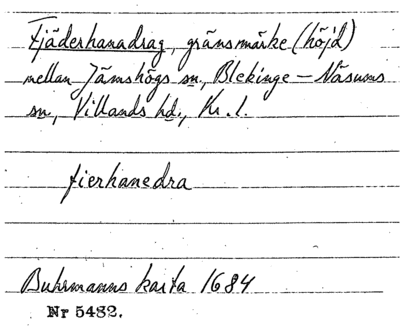 Fjäderhanadrag, gränsmärke (höjd)
mellan Jämshögs sn., Blekinge – Näsums
sn., Villands hd., Kr. l.
fierhanedra
Buhrmanns karta 1684
Nr 5482.